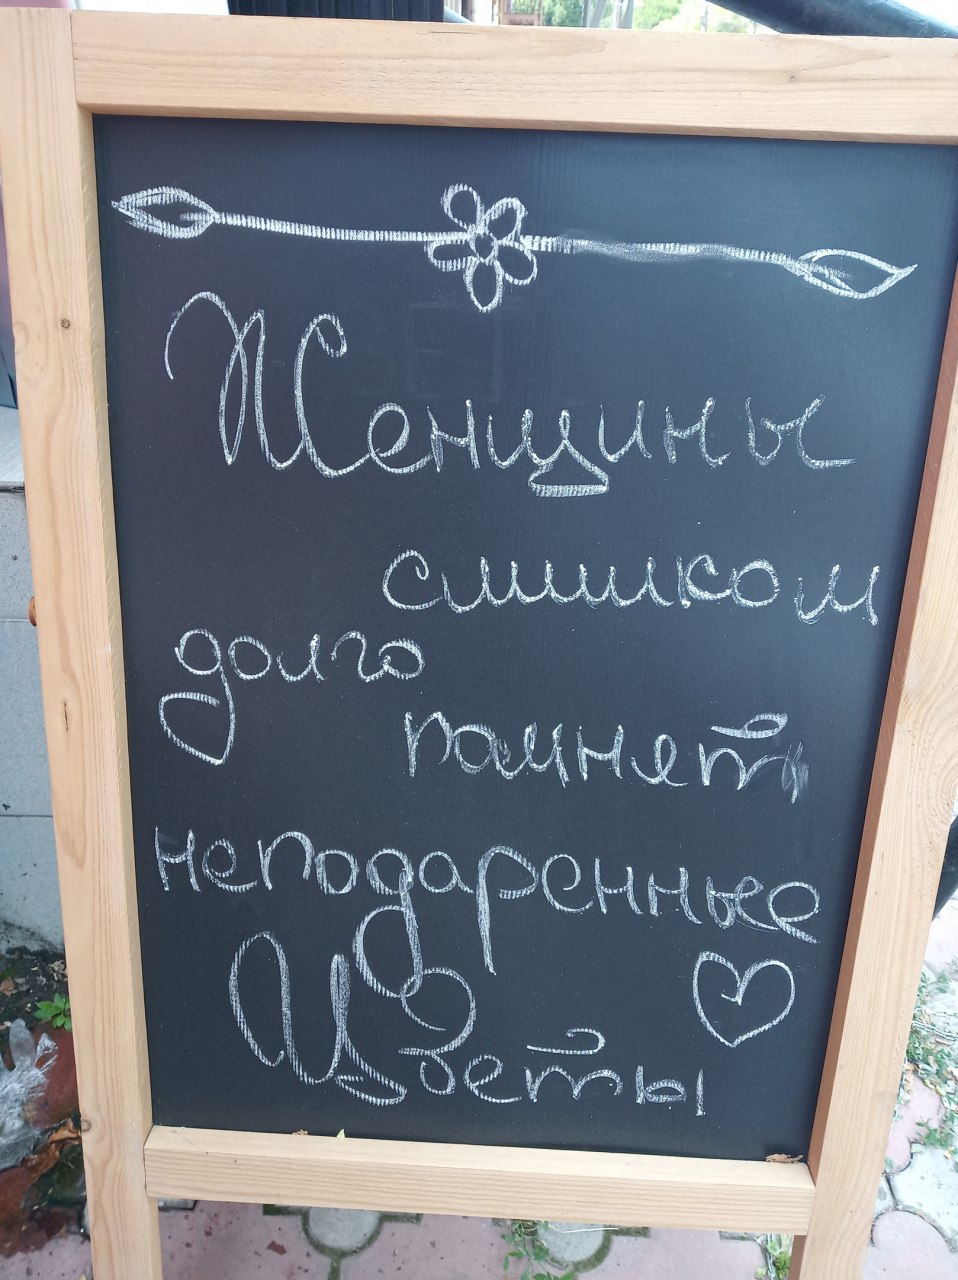 Женщины
слишком
долго
помнят
неподаренные
Цветы